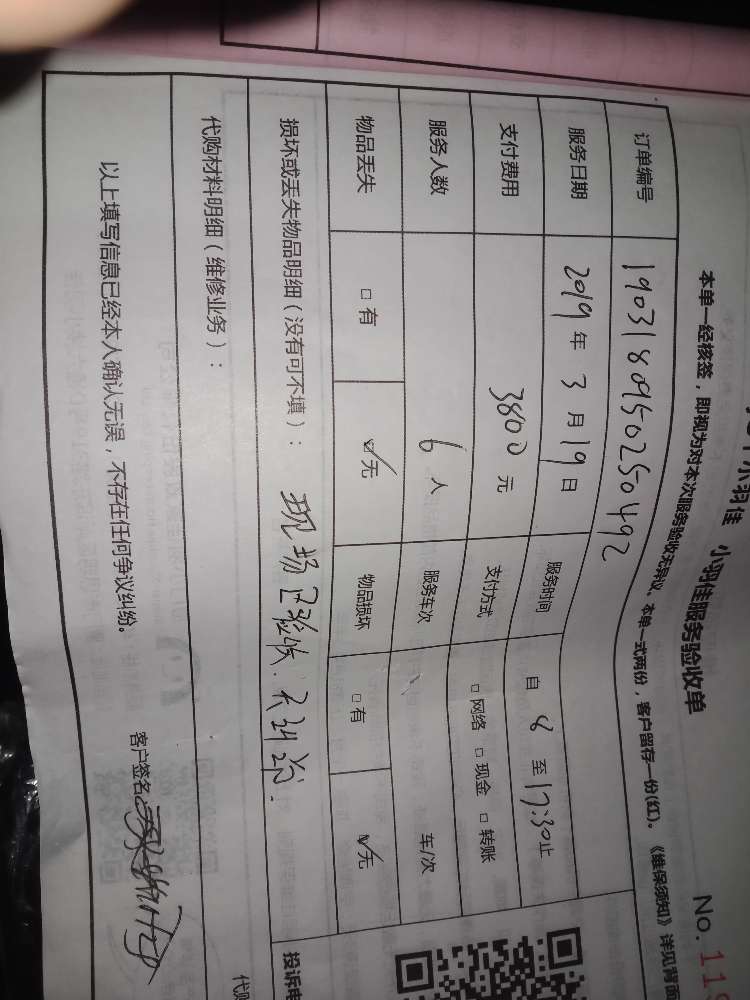 小羽佳 小羽佳服务验收单
No. 119
本单一经核签，即视为对本次服务验收无异议。本单一式两份，客户留存一份(红)。《维保须知》详见背面
订单编号 190318095025 0492
服务日期 2019年3月19日 服务时间 自8至17:30止
支付费用 3800元 支付方式 □网络 □现金 □转账
服务人数 6人 服务车次 车/次
物品丢失 □有 ☑无 物品损坏 □有 ☑无
损坏或丢失物品明细（没有可不填）： 现场已验收.无纠纷.
代购材料明细（维修业务）：
投诉电
代购
以上填写信息已经本人确认无误，不存在任何争议纠纷。
客户签名：